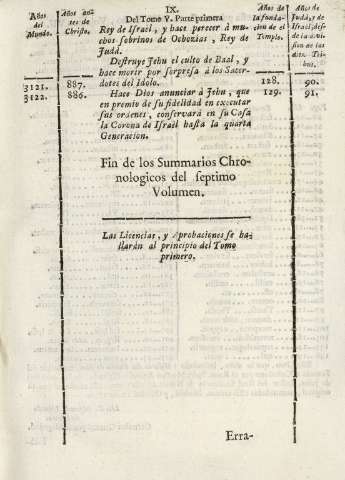 IX.
Del Tomo V. Parte primera
Años del Mundo.
Años antes de Christo.
Años de la fundacion de el Templo.
Rey de Israel, y hace perecer à muchos sobrinos de Ochozias, Rey de Judá.
Destruye Jehu el culto de Baal, y hace morir por sorpresa à los Sacerdotes del Idolo.
3121. 887. 128. 90.
Hace Dios anunciar à Jehu, que en premio de su fidelidad en executar sus ordenes, conservarà en su Casa la Corona de Israèl hasta la quarta Generacion.
3122. 886. 129. 91.
Fin de los Summarios Chro-
nologicos del septimo
Volumen.
Las Licencias, y Aprobaciones se ha-
llarán al principio del Tomo
primero.
Erra-